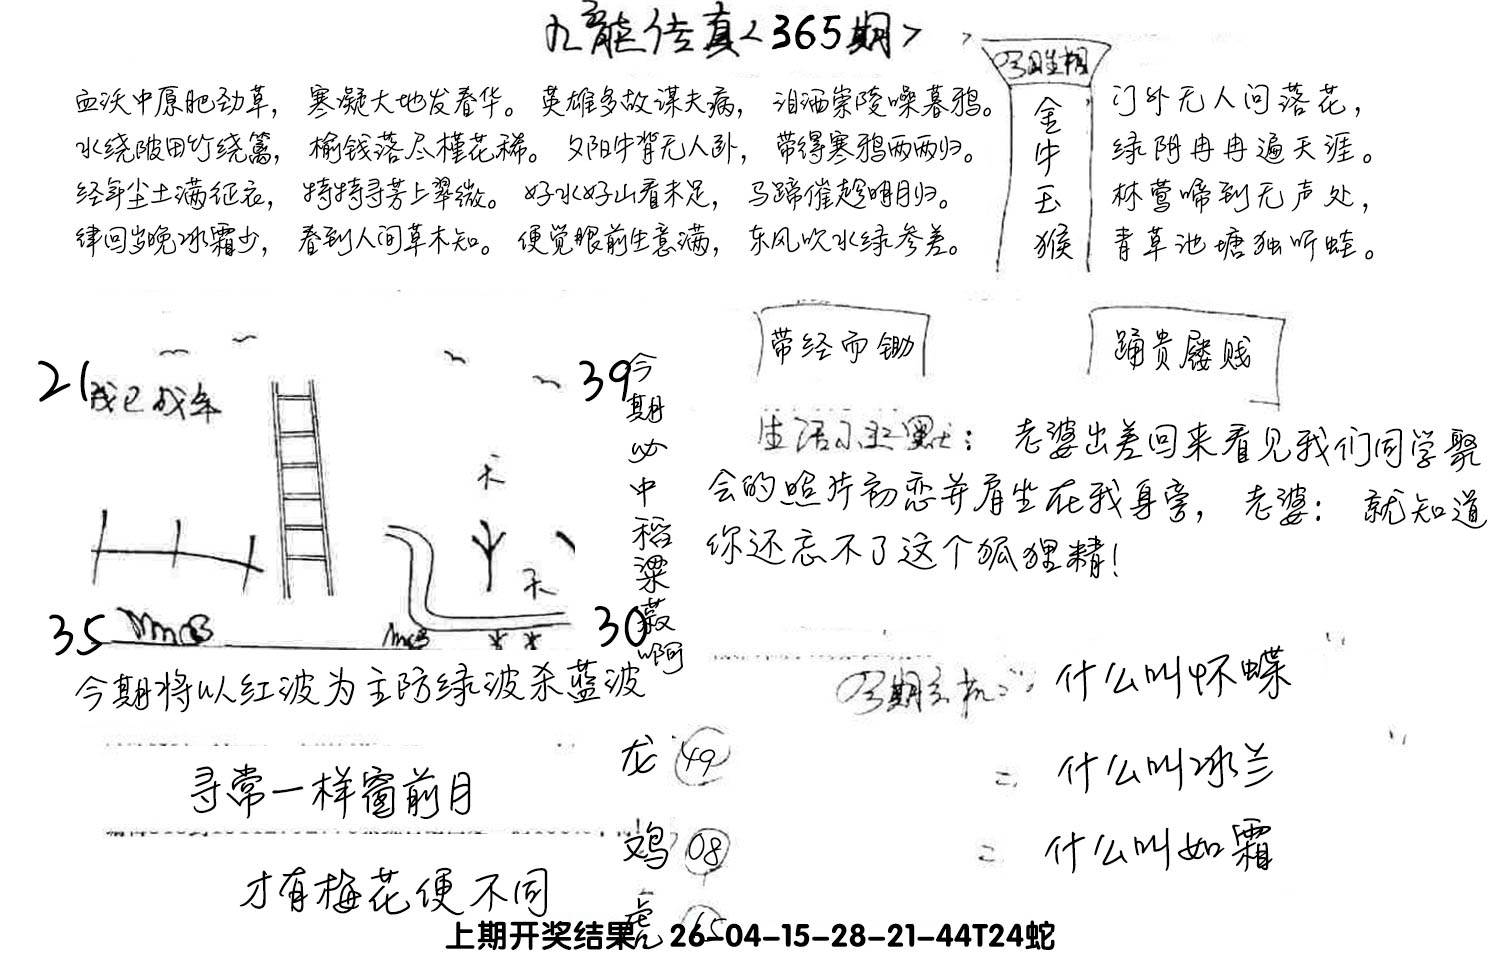 九龙传真<365期>
血沃中原肥劲草，寒凝大地发春华。英雄多故谋夫病，泪洒崇陵噪暮鸦。
水绕陂田竹绕篱，榆钱落尽槿花稀。夕阳牛背无人卧，带得寒鸦两两归。
经年尘土满征衣，特特寻芳上翠微。好水好山看未足，马蹄催趁明月归。
律回岁晚冰霜少，春到人间草木知。便觉眼前生意满，东风吹水绿参差。
今日生相
金牛玉猴
门外无人问落花，
绿阴冉冉遍天涯。
林莺啼到无声处，
青草池塘独听蛙。
21
我已成年
39
35
30
今期必中稻粱菽啊
带经而锄
踊贵屦贱
生活小幽默：老婆出差回来看见我们同学聚
会的照片初恋并肩坐在我身旁，老婆：就知道
你还忘不了这个狐狸精！
今期将以红波为主防绿波杀蓝波
今期玄机：什么叫怀蝶
什么叫冰兰
什么叫如霜
寻常一样窗前月
才有梅花便不同
龙 49
鸡 08
虎
上期开奖结果 26-04-15-28-21-44T24蛇